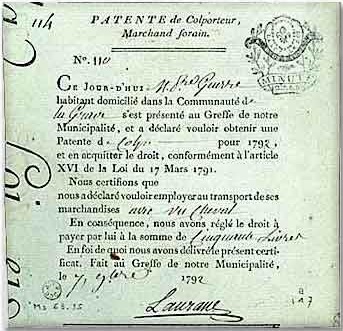 114
PATENTE de Colporteur,
Marchand forain.
N.° 110
CE JOUR-D'HUI
habitant domicilié dans la Communauté de
la Grave s'est présenté au Greffe de notre
Municipalité, et a déclaré vouloir obtenir une
Patente de Colp. pour 1792,
et en acquitter le droit, conformément à l'article
XVI de la Loi du 17 Mars 1791.
Nous certifions que
nous a déclaré vouloir employer au transport de ses
marchandises avec un Cheval
En conséquence, nous avons réglé le droit à
payer par lui à la somme de Cinquante Livres
En foi de quoi nous avons délivré le présent certi-
ficat. Fait au Greffe de notre Municipalité,
le 7 9bre 1792
Laurans
MINUTE